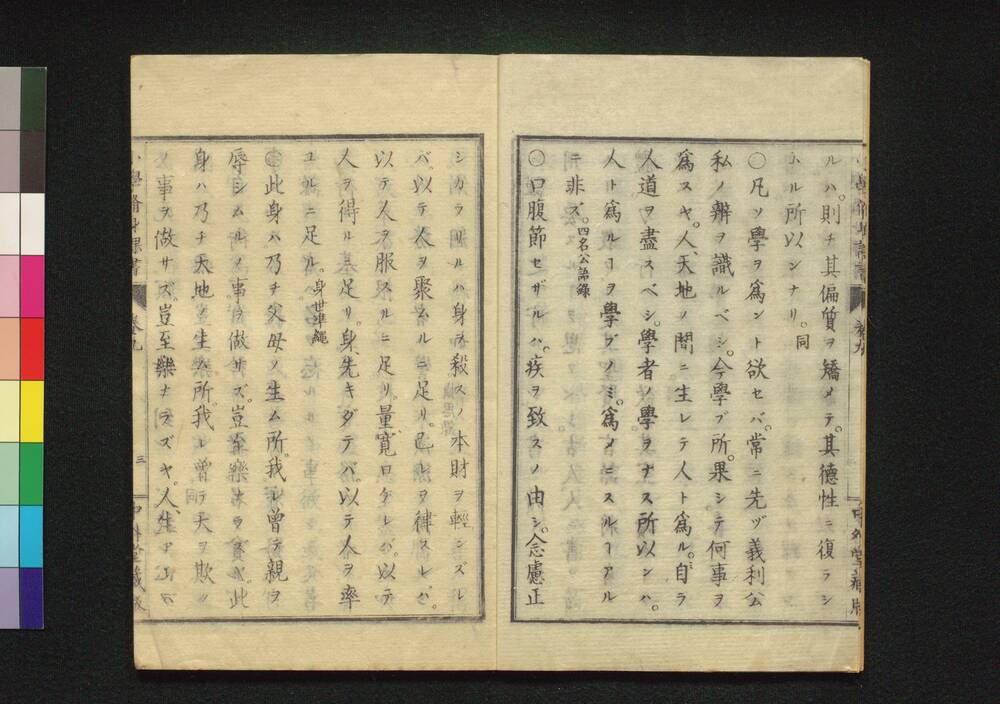 ルハ。則チ其偏質ヲ矯メテ。其德性ニ復ラシ
ムル所以ンナリ。同
〇凡ソ學ヲ爲ント欲セバ。常ニ先ヅ義利公
私ノ辨ヲ識ルベシ。今學ブ所。果シテ何事ヲ
爲スヤ。人、天地ノ間ニ生レテ人ト爲ル。自ラ
人道ヲ盡スベシ。學者ノ學ヲナス所以ンハ。
人ト爲ルヿヲ學ブノミ。爲メニスルヿアル
ニ非ズ。四名公語錄
〇口腹節セザルハ。疾ヲ致スノ由シ。念慮正
シカラザルハ身ヲ殺スノ本財ヲ輕ンズレ
バ。以テ人ヲ聚ムルニ足リ。己レヲ律スレバ。
以テ人ヲ服スルニ足リ。量寛ロケレバ。以テ
人ヲ得ルニ足リ。身、先キダテバ。以テ人ヲ率
ユルニ足ル。身世準繩
〇此身ハ乃チ父母ノ生ム所。我レ曾テ親ヲ
辱シムルノ事ヲ做サズ。豈至樂ナラズヤ。此
身ハ乃チ天地ノ生ム所。我レ曾テ天ヲ欺ク
ノ事ヲ做サズ。豈至樂ナラズヤ。人、生
小學脩身課書
卷九
三
中外堂藏版